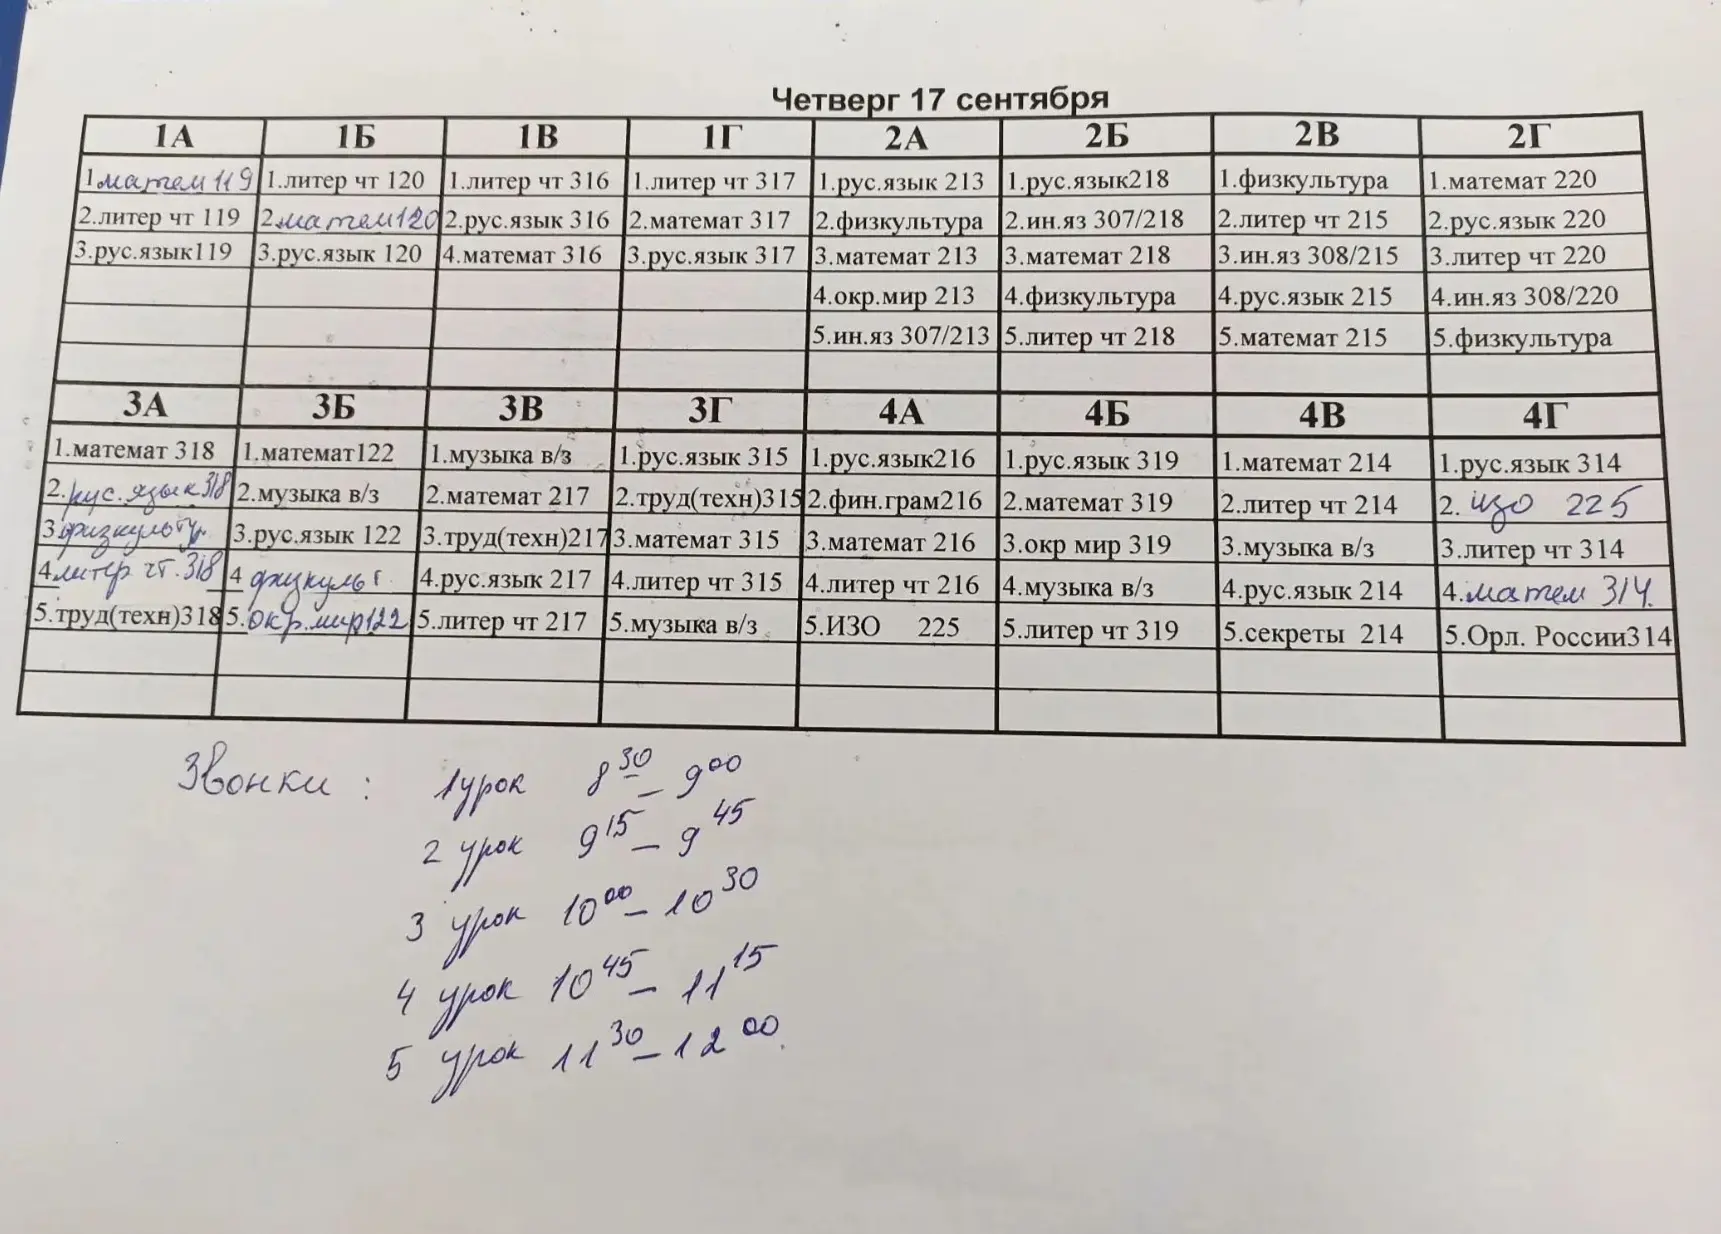 Четверг 17 сентября
1А 1Б 1В 1Г 2А 2Б 2В 2Г
1матем 119 1.литер чт 120 1.литер чт 316 1.литер чт 317 1.рус.язык 213 1.рус.язык218 1.физкультура 1.математ 220
2.литер чт 119 2матем120 2.рус.язык 316 2.математ 317 2.физкультура 2.ин.яз 307/218 2.литер чт 215 2.рус.язык 220
3.рус.язык119 3.рус.язык 120 4.математ 316 3.рус.язык 317 3.математ 213 3.математ 218 3.ин.яз 308/215 3.литер чт 220
4.окр.мир 213 4.физкультура 4.рус.язык 215 4.ин.яз 308/220
5.ин.яз 307/213 5.литер чт 218 5.математ 215 5.физкультура
3А 3Б 3В 3Г 4А 4Б 4В 4Г
1.математ 318 1.математ122 1.музыка в/з 1.рус.язык 315 1.рус.язык216 1.рус.язык 319 1.математ 214 1.рус.язык 314
2.рус.язык318 2.музыка в/з 2.математ 217 2.труд(техн)315 2.фин.грам216 2.математ 319 2.литер чт 214 2. изо 225
3физкульту. 3.рус.язык 122 3.труд(техн)217 3.математ 315 3.математ 216 3.окр мир 319 3.музыка в/з 3.литер чт 314
4литер чт.318 4 физкульт 4.рус.язык 217 4.литер чт 315 4.литер чт 216 4.музыка в/з 4.рус.язык 214 4.матем 314.
5.труд(техн)318 5.окр.мир122 5.литер чт 217 5.музыка в/з 5.ИЗО 225 5.литер чт 319 5.секреты 214 5.Орл. России314
Звонки: 1урок 8 30 – 9 00
2 урок 9 15 – 9 45
3 урок 10 00 – 10 30
4 урок 10 45 – 11 15
5 урок 11 30 – 12 00.